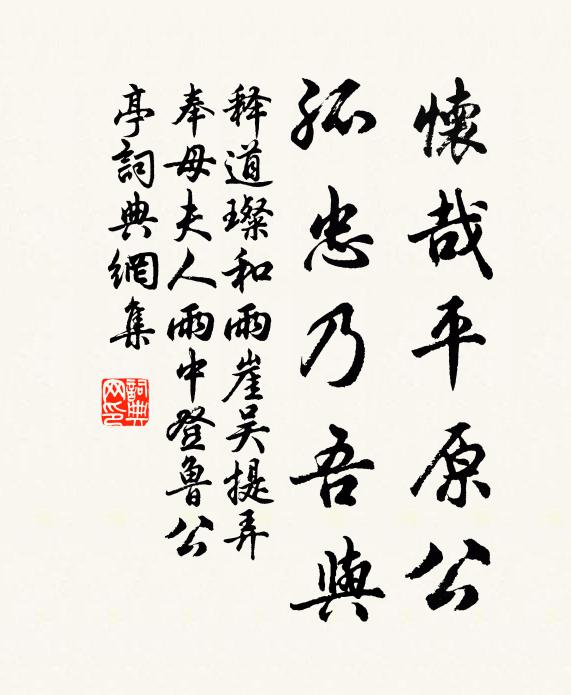 懷哉平原公
孤忠乃吾與
释道璨和雨崖吴提弄
奉母夫人雨中登魯公
亭詞典網集
詞典网印